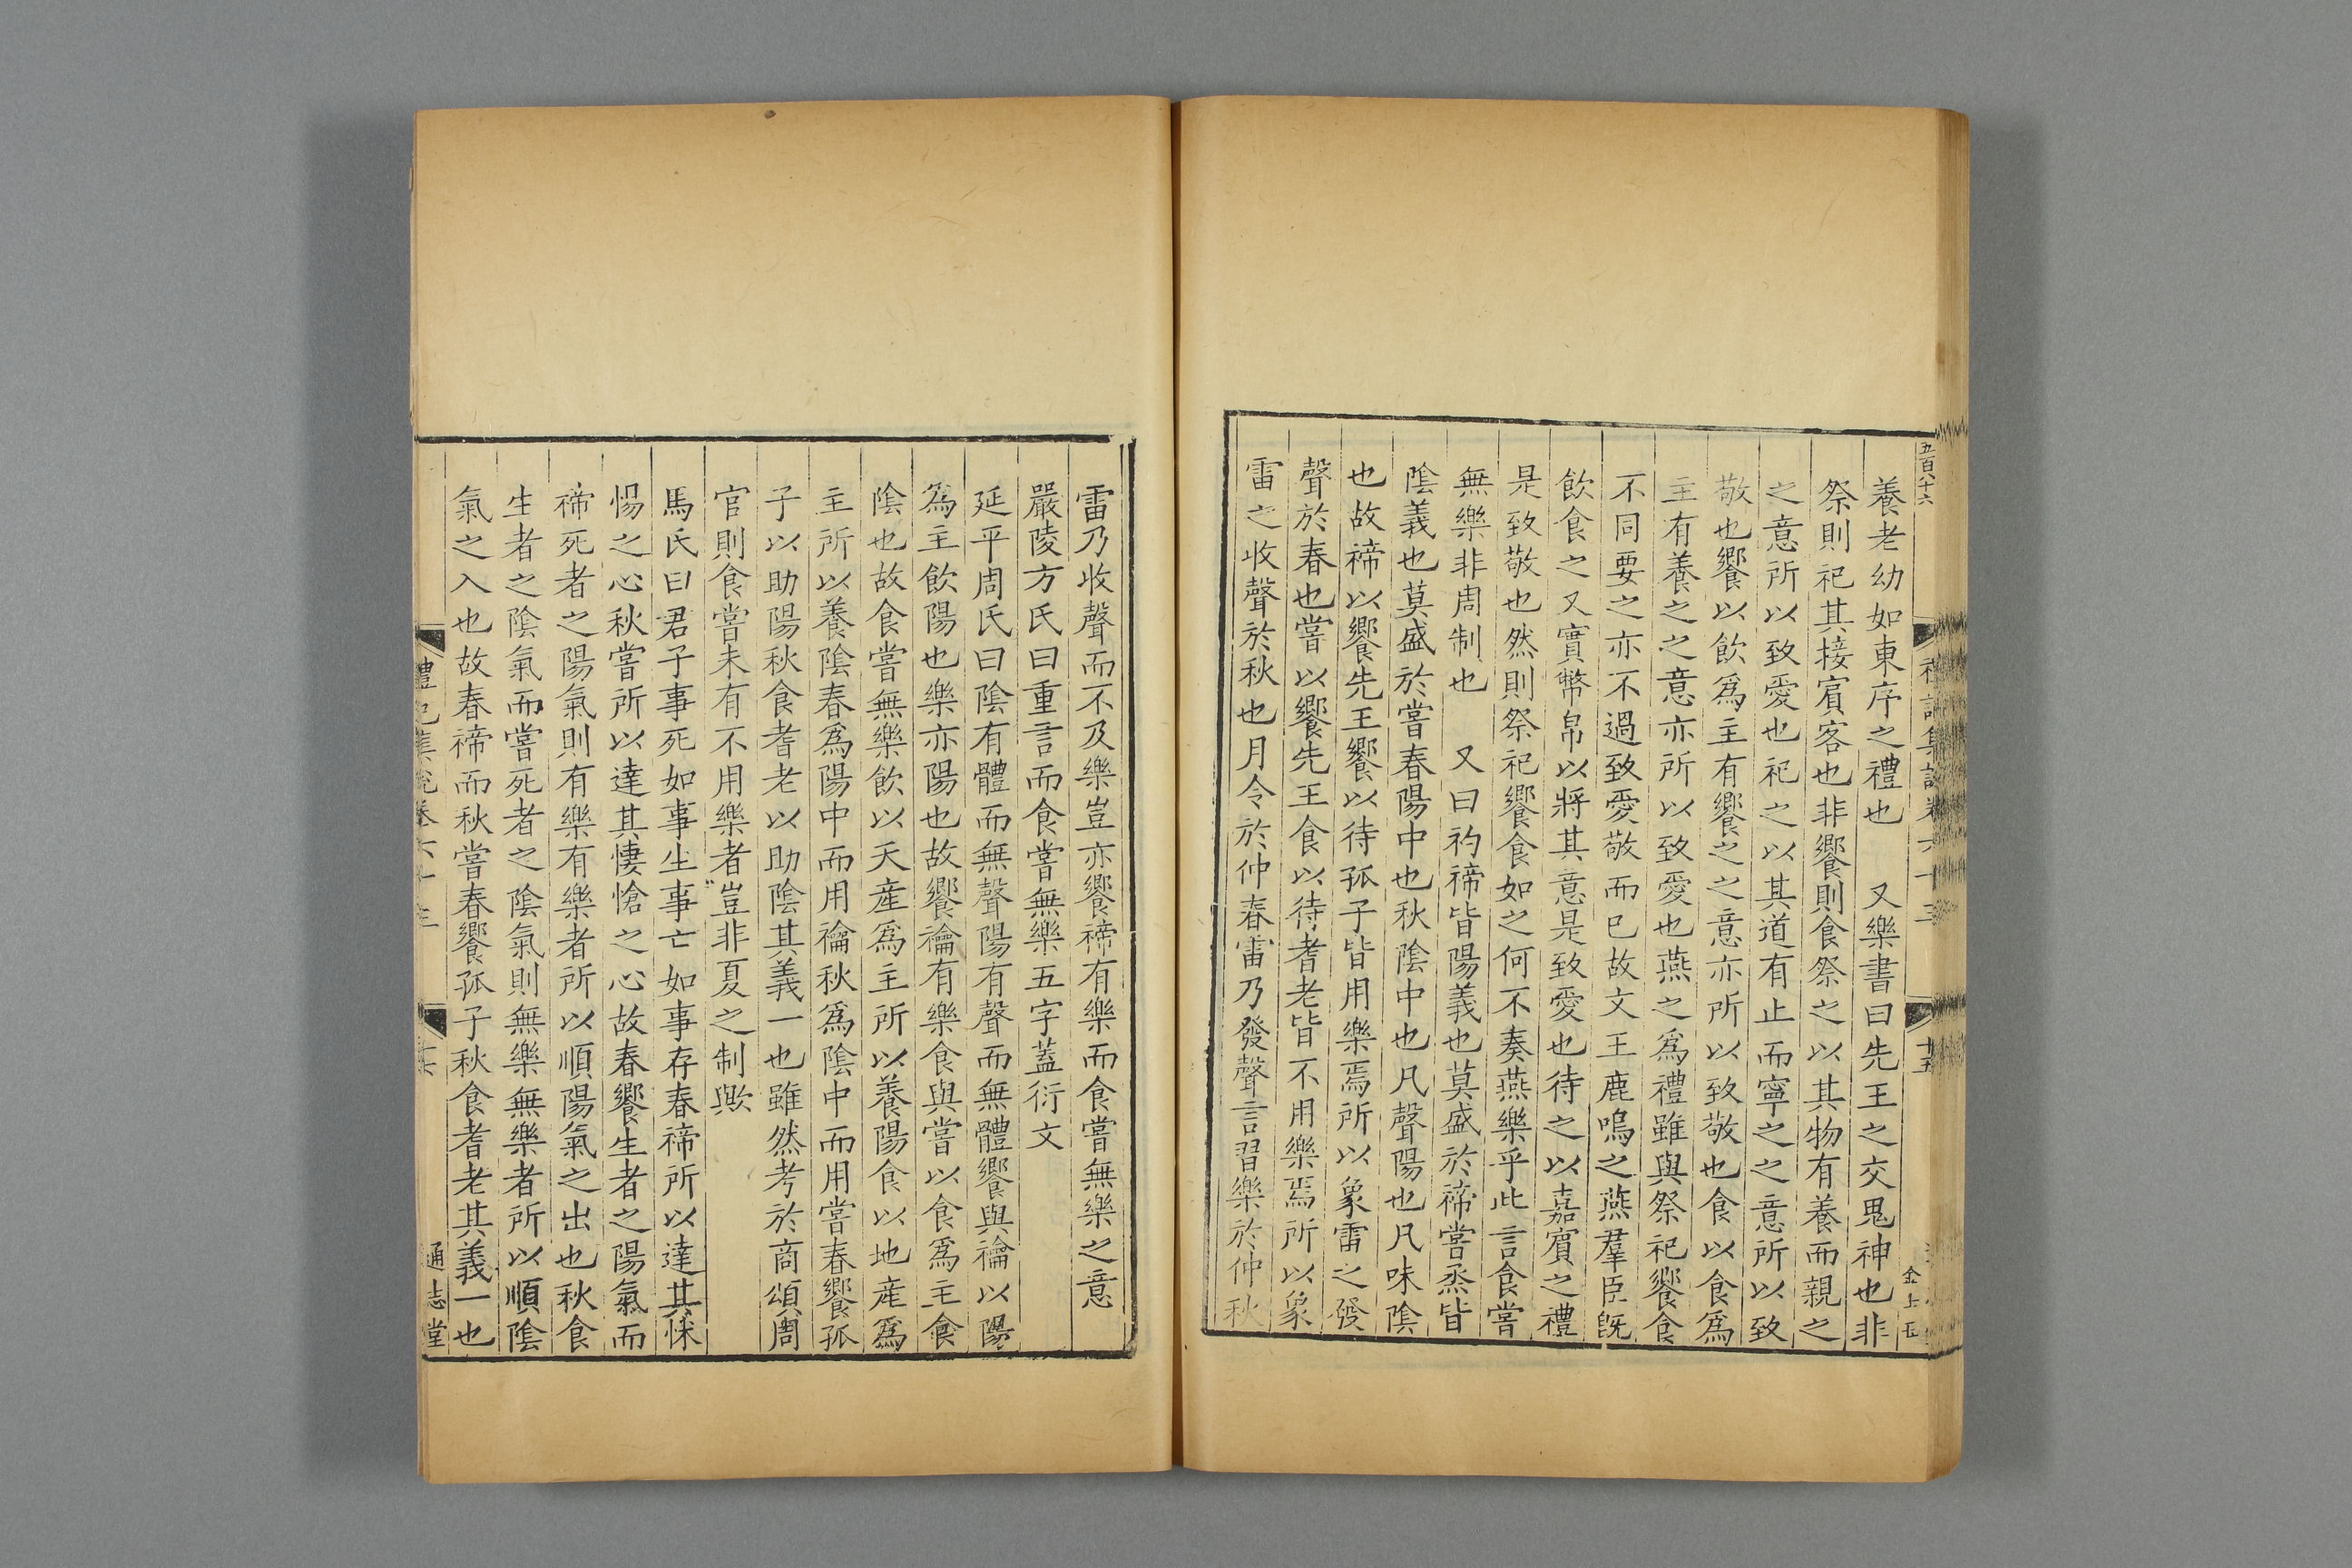 五百八十六
禮記集說卷六十三
十五
金上玉
養老幼如東序之禮也　又樂書曰先王之交鬼神也非
祭則祀其接賓客也非饗則食祭之以其物有養而親之
之意所以致愛也祀之以其道有止而寧之之意所以致
敬也饗以飲爲主有饗之之意亦所以致敬也食以食爲
主有養之之意亦所以致愛也燕之爲禮雖與祭祀饗食
不同要之亦不過致愛敬而已故文王鹿鳴之燕羣臣旣
飲食之又實幣帛以將其意是致愛也待之以嘉賓之禮
是致敬也然則祭祀饗食如之何不奏燕樂乎此言食嘗
無樂非周制也　又曰礿禘皆陽義也莫盛於禘嘗烝皆
陰義也莫盛於嘗春陽中也秋陰中也凡聲陽也凡味陰
也故禘以饗先王饗以待孤子皆用樂焉所以象雷之發
聲於春也嘗以饗先王食以待耆老皆不用樂焉所以象
雷之收聲於秋也月令於仲春雷乃發聲言習樂於仲秋
雷乃收聲而不及樂豈亦饗禘有樂而食嘗無樂之意
嚴陵方氏曰重言而食嘗無樂五字蓋衍文
延平周氏曰陰有體而無聲陽有聲而無體饗與禴以陽
爲主飲陽也樂亦陽也故饗禴有樂食與嘗以食爲主食
陰也故食嘗無樂飲以天産爲主所以養陽食以地産爲
主所以養陰春爲陽中而用禴秋爲陰中而用嘗春饗孤
子以助陽秋食耆老以助陰其義一也雖然考於商頌周
官則食嘗未有不用樂者豈非夏之制歟
馬氏曰君子事死如事生事亡如事存春禘所以達其怵
惕之心秋嘗所以達其悽愴之心故春饗生者之陽氣而
禘死者之陽氣則有樂有樂者所以順陽氣之出也秋食
生者之陰氣而嘗死者之陰氣則無樂無樂者所以順陰
氣之入也故春禘而秋嘗春饗孤子秋食耆老其義一也
禮記集說卷六十三
十六
通志堂